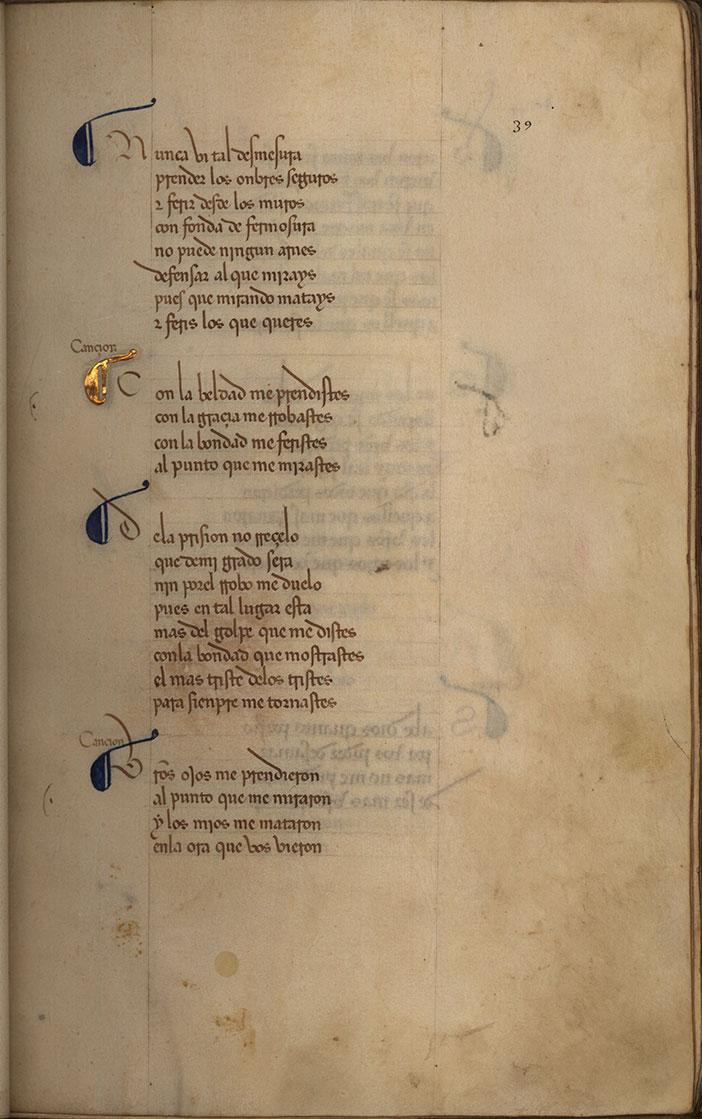 39
Nunca vi tal desmesura
prender los onbres seguros
⁊ ferir desde los muros
con fonda de fermosura
no puede ningun arnes
defensar al que mirays
pues que mirando matays
⁊ feris los que queres
Cancion
Con la beldad me prendistes
con la graçia me rrobastes
con la bondad me feristes
al punto que me mirastes
dela prision no rreçelo
que demi grado sera
nin porel rrobo me duelo
pues en tal lugar esta
mas del golpe que me distes
conla bondad que mostrastes
el mas triste delos tristes
para sienpre me tornastes
Cancion
Vr̃os ojos me prendieron
al punto que me miraron
ẏ los mios me mataron
enla ora que vos vieron